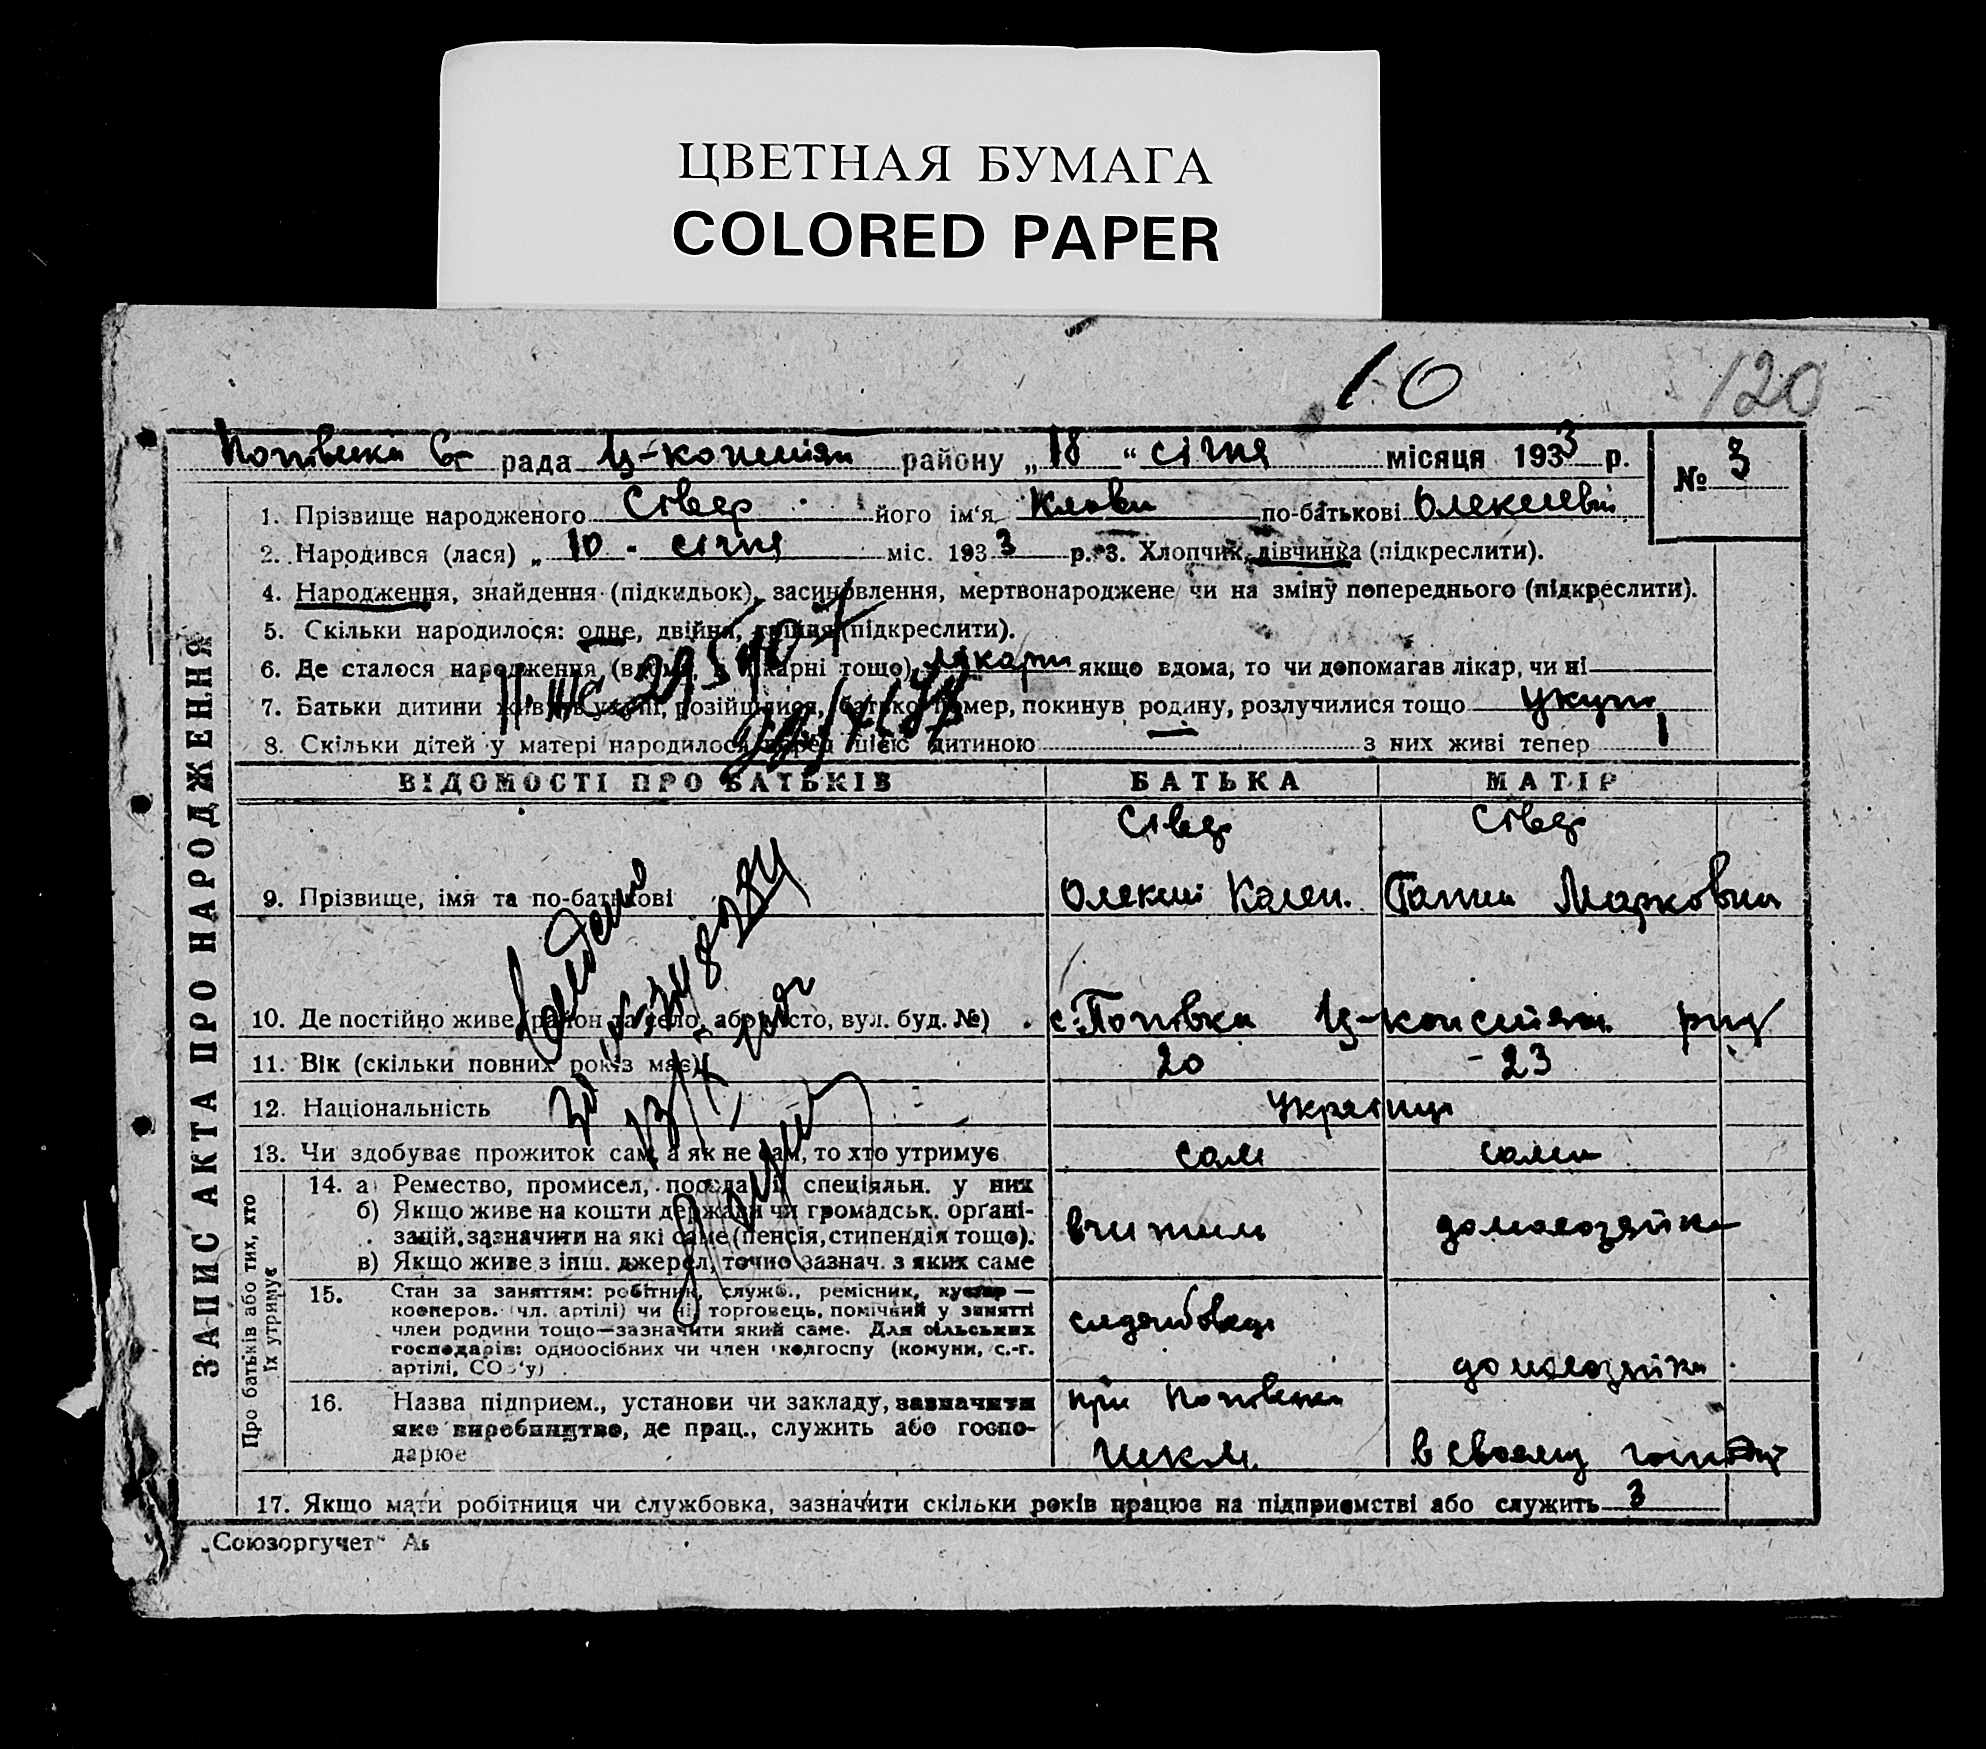 ЦВЕТНАЯ БУМАГА
COLORED PAPER
10
120
рада района району „18“ січня місяця 1933 р.
№ 3
1. Прізвище народженого Сівер його ім'я Клави по-батькові Олексіевн
2. Народився (лася) „10 - січня міс. 1933 р. 3. Хлопчик, дівчинка (підкреслити).
4. Народження, знайдення (підкидьок), засиновлення, мертвонароджене чи на зміну попереднього (підкреслити).
5. Скільки народилося: одне, двійня, трійня (підкреслити).
6. Де сталося народження (вдома, в лікарні тощо) лікарні якщо вдома, то чи допомагав лікар, чи ні
7. Батьки дитини живуть укупі, розійшлися, батько помер, покинув родину, розлучилися тощо укупі
8. Скільки дітей у матері народилося перед цією дитиною — з них живі тепер 1
ЗАПИС АКТА ПРО НАРОДЖЕННЯ
ВІДОМОСТІ ПРО БАТЬКІВ БАТЬКА МАТІР
Сівер Сівер
9. Прізвище, імя та по-батькові Олексій Кален. Ганна Марковна
10. Де постійно живе (район та село, або місто, вул. буд. №) с. Попівка
11. Вік (скільки повних років має) 20 - 23
12. Національність Українці
13. Чи здобуває прожиток сам, а як не сам, то хто утримує сам сама
Про батьків або тих, хто їх утримує
14. а) Ремество, промисел, посада й спеціяльн. у них
б) Якщо живе на кошти держави чи громадськ. органі-
зацій, зазначити на які саме (пенсія, стипендія тощо).
в) Якщо живе з інш. джерел, точно зазнач. з яких саме
вчитель домохозяйка
15. Стан за заняттям: робітник, служб., ремісник, кустар —
кооперов. (чл. артілі) чи ні, торговець, помічний у занятті
член родини тощо—зазначити який саме. Для сільських
господарів: одноосібних чи член колгоспу (комуни, с.-г.
артілі, СОЗ'у)
домохозяйка
16. Назва підприєм., установи чи закладу, зазначити
яке виробництво, де прац., служить або госпо-
дарює
при
ШКМ. в своєму
17. Якщо мати робітниця чи службовка, зазначити скільки років працює на підприємстві або служить 3
„Союзоргучет“